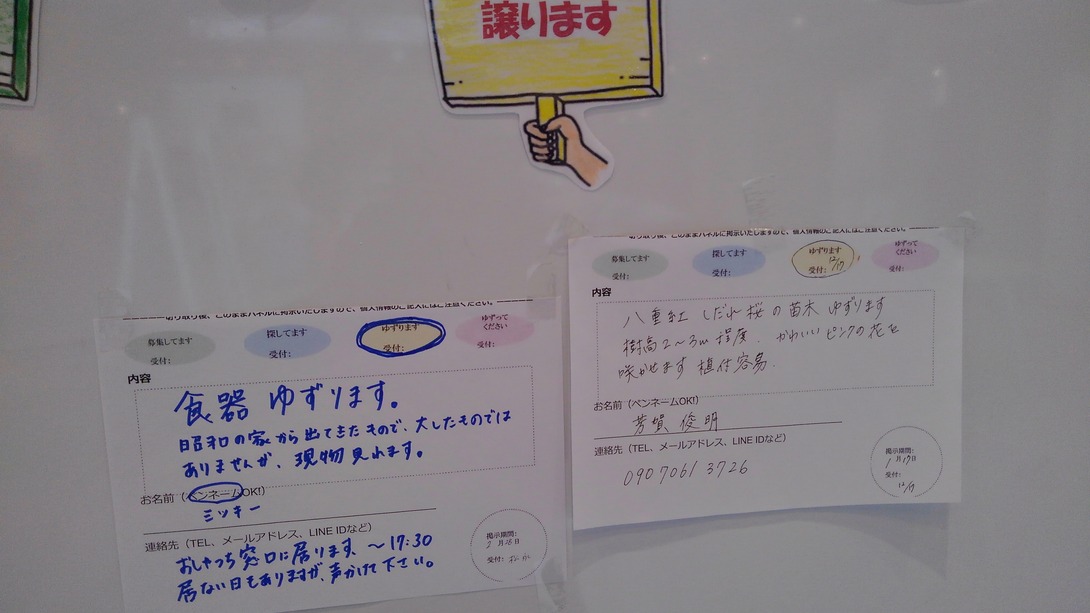 譲ります
切り取り後、このままパネルに掲示いたしますので、個人情報のご記入にはご注意ください。
募集してます
受付:
探してます
受付:
ゆずります
受付:
ゆずって
ください
内容
食器 ゆずります。
昭和の家から出てきたもので、大したものでは
ありませんが、現物見れます。
お名前（ペンネームOK!）
ミッキー
連絡先（TEL、メールアドレス、LINE IDなど）
おしゃっち窓口に居ります、〜17:30
居ない日もありますが、声かけて下さい。
掲示期間:
2月28日
受付:
切り取り後、このままパネルに掲示いたしますので、個人情報のご記入にはご注意ください。
募集してます
受付:
探してます
受付:
ゆずります
受付: 12/17
ゆずって
ください
内容
八重紅しだれ桜の苗木 ゆずります
樹高2〜3m程度、かわいいピンクの花を
咲かせます 植付容易.
お名前（ペンネームOK!）
芳賀 俊明
連絡先（TEL、メールアドレス、LINE IDなど）
090 7061 3726
掲示期間:
1月17日
受付:
12/17